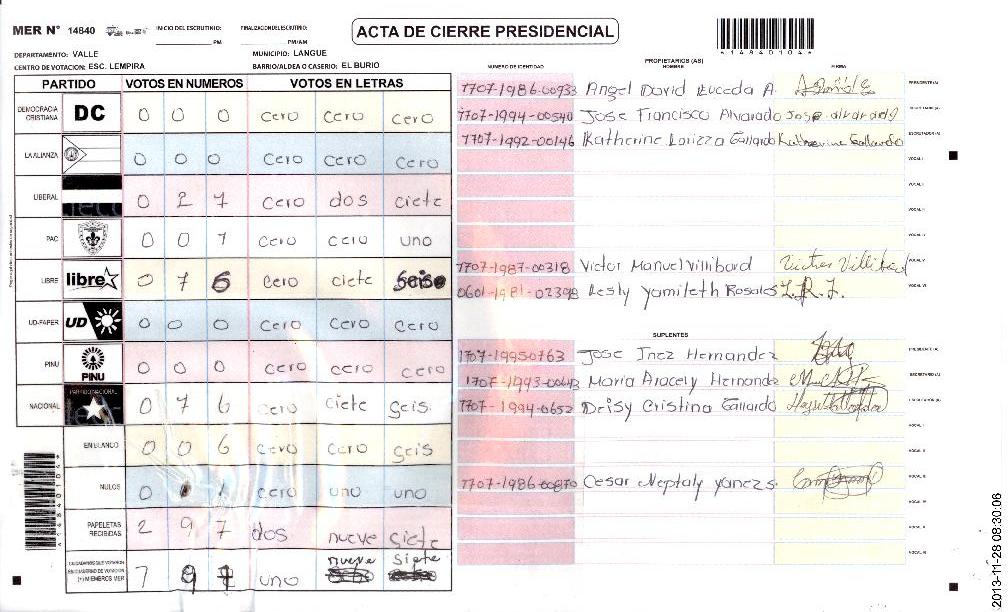 MER N° 14840 INICIO DEL ESCRUTINIO: PM FINALIZACION DEL ESCRUTINIO: PM/AM ACTA DE CIERRE PRESIDENCIAL
DEPARTAMENTO: VALLE MUNICIPIO: LANGUE
CENTRO DE VOTACION: ESC. LEMPIRA BARRIO/ALDEA O CASERIO: EL BURIO
*14840104*
PARTIDO VOTOS EN NUMEROS VOTOS EN LETRAS
DEMOCRACIA CRISTIANA DC 0 0 0 cero cero cero
LA ALIANZA 0 0 0 cero cero cero
LIBERAL 0 2 7 cero dos ciete
PAC 0 0 1 cero cero uno
LIBRE libre 0 7 6 cero ciete seis
UD-FAPER UD 0 0 0 cero cero cero
PINU PINU 0 0 0 cero cero cero
NACIONAL PARTIDO NACIONAL 0 7 6 cero ciete seis
EN BLANCO 0 0 6 cero cero seis
NULOS 0 1 1 cero uno uno
PAPELETAS RECIBIDAS 2 9 7 dos nueve ciete
CIUDADANOS QUE VOTARON (+) MIEMBROS MER 1 9 7 uno nueve siete
NUMERO DE IDENTIDAD PROPIETARIOS (AS) NOMBRE FIRMA
1707-1986-00933 Angel David Euceda A. PRESIDENTE (A)
1707-1994-00540 Jose Francisco Alvarado Jose alvarado SECRETARIO (A)
1707-1992-00146 Katherine Larizza Gallardo Katherine Gallardo ESCRUTADOR (A)
VOCAL I
VOCAL II
VOCAL III
VOCAL IV
1707-1987-00318 Victor Manuel Villibord Victor Villibord VOCAL V
0601-1981-02398 Lesly Yamileth Rosales L.R.J. VOCAL VI
SUPLENTES
1707-19950763 Jose Inez Hernandez PRESIDENTE (A)
1707-1993-00642 Maria Aracely Hernande SECRETARIO (A)
1707-1994-0652 Deisy Cristina Gallardo ESCRUTADOR (A)
VOCAL I
VOCAL II
1707-1986-00870 Cesar Neptaly yanez s. VOCAL III
VOCAL IV
VOCAL V
VOCAL VI
2013-11-28 08:30:06